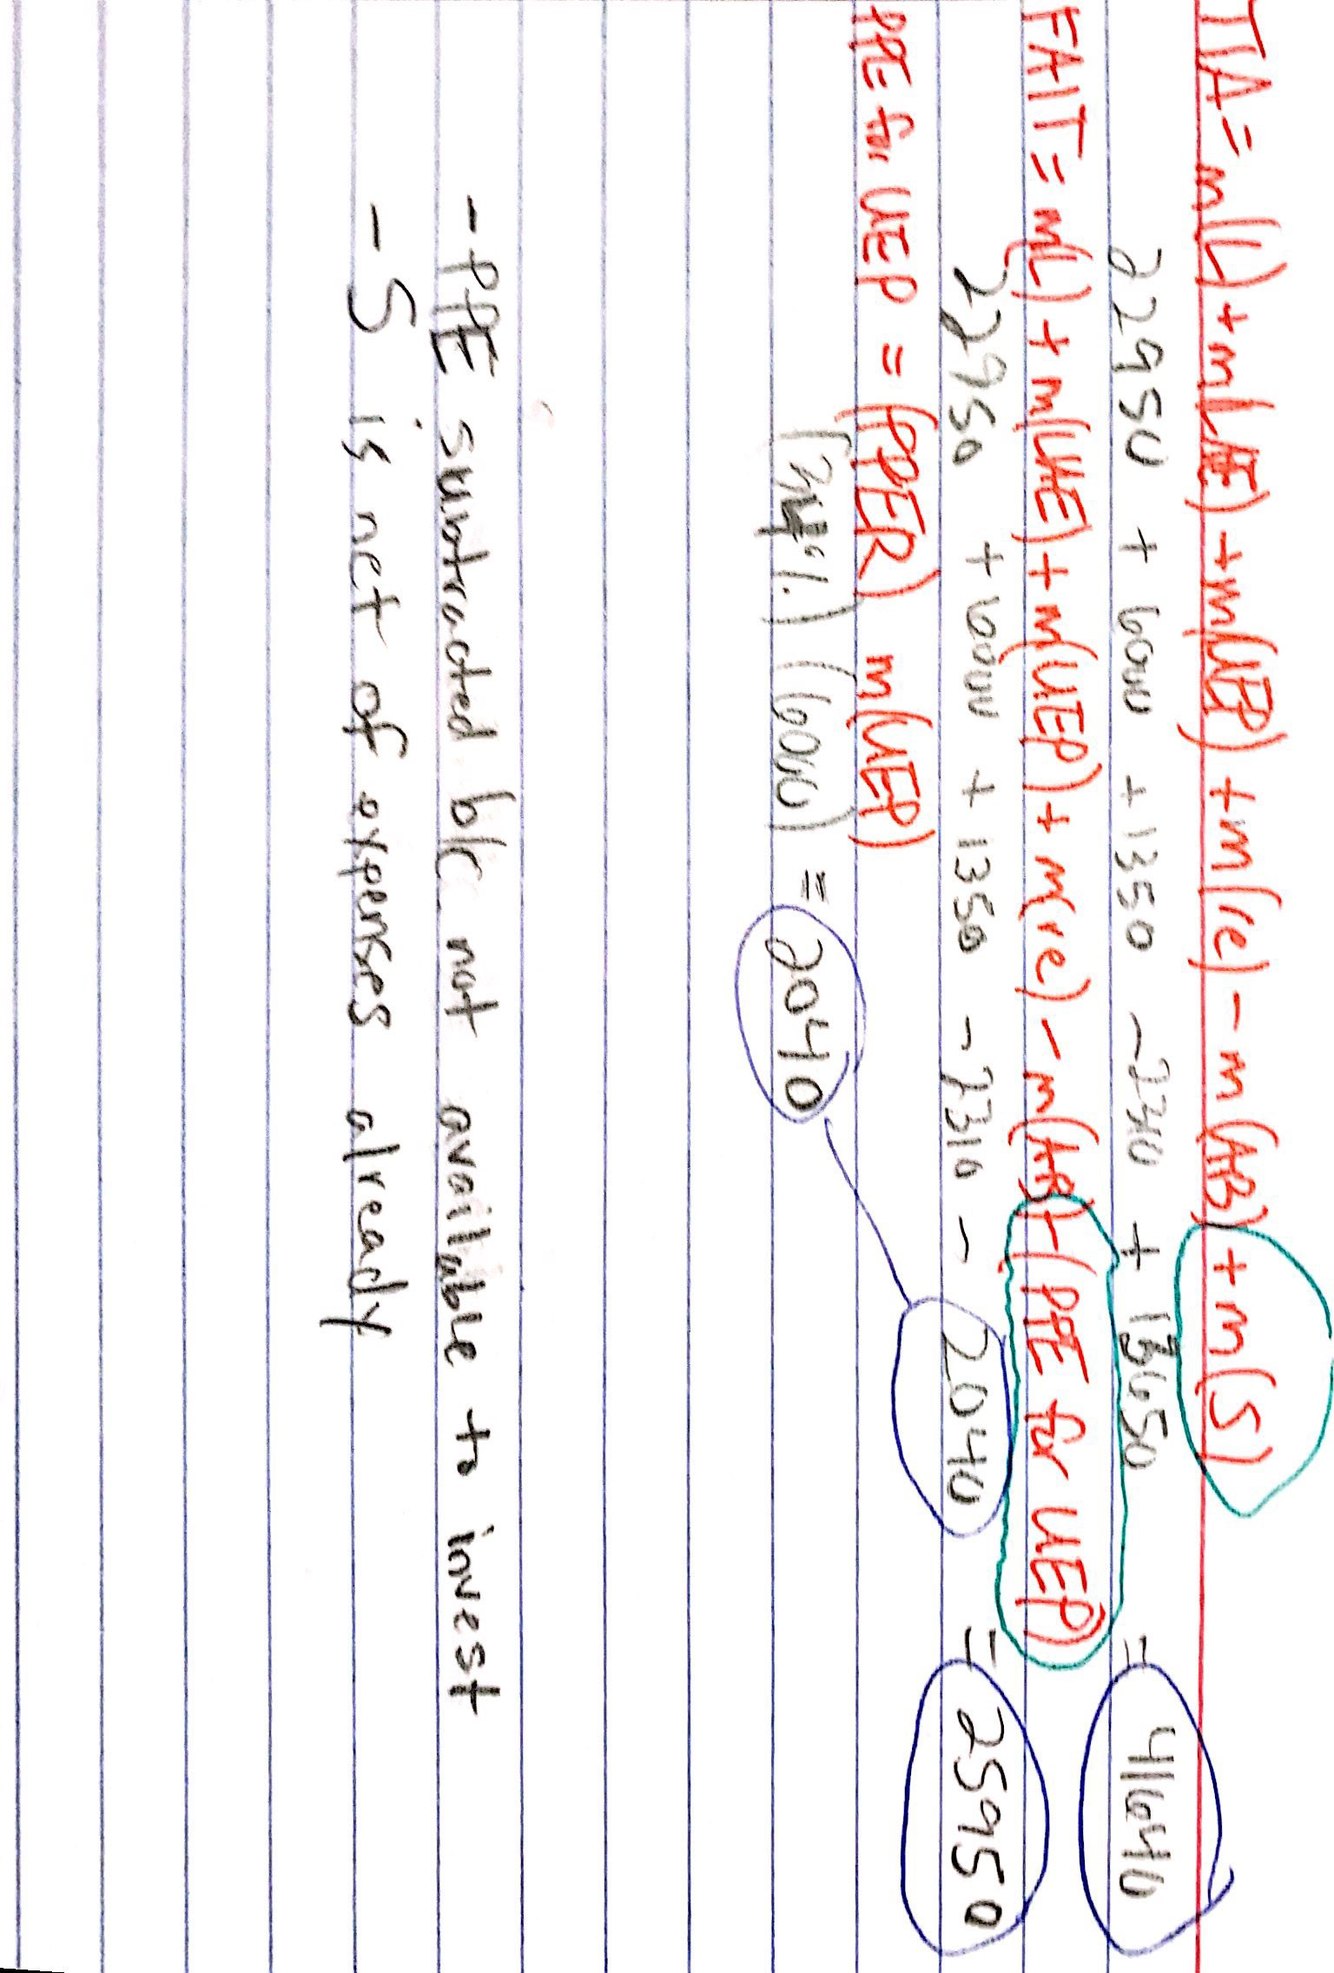 TIA = m(L) + m(LAE) + m(UEP) + m(re) - m(AB) + m(S)
22950 + 6000 + 1350 - 2310 + 13650 = 41640
FAIT = m(L) + m(LAE) + m(UEP) + m(re) - m(AB) - (PPE for UEP)
22950 + 6000 + 1350 - 2310 - 2040 = 25950
PPE for UEP = (PPER) m(UEP)
(34%) (6000) = 2040
- PPE subtracted b/c not available to invest
- S is net of expenses already